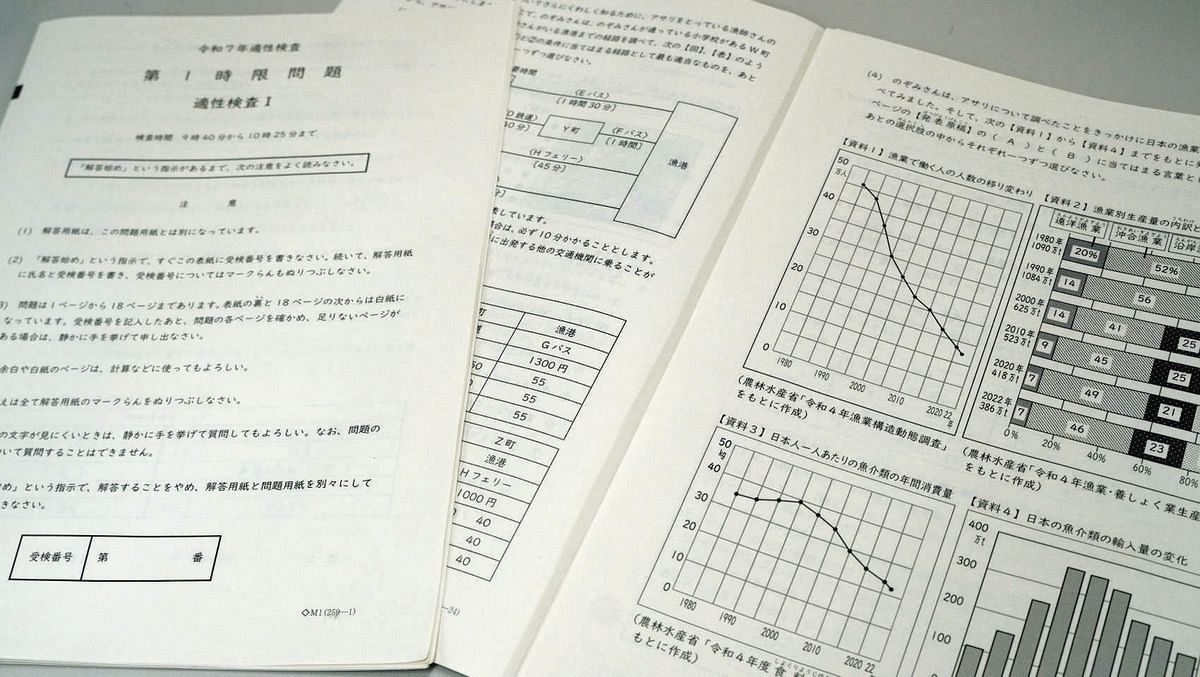 令和7年適性検査
第 1 時 限 問 題
適性検査Ⅰ
検査時間 9時40分から10時25分まで
「解答始め」という指示があるまで、次の注意をよく読みなさい。
注 意
(1) 解答用紙は、この問題用紙とは別になっています。
(2) 「解答始め」という指示で、すぐこの表紙に受検番号を書きなさい。続いて、解答用紙
に氏名と受検番号を書き、受検番号についてはマークらんもぬりつぶしなさい。
3) 問題は1ページから18ページまであります。表紙の裏と18ページの次からは白紙に
なっています。受検番号を記入したあと、問題の各ページを確かめ、足りないページが
ある場合は、静かに手を挙げて申し出なさい。
余白や白紙のページは、計算などに使ってもよろしい。
えは全て解答用紙のマークらんをぬりつぶしなさい。
の文字が見にくいときは、静かに手を挙げて質問してもよろしい。なお、問題の
いて質問することはできません。
め」という指示で、解答することをやめ、解答用紙と問題用紙を別々にして
きなさい。
受検番号 第 番
◇M1(259—1)
いてさらにくわしく知るために、アサリをとっている漁師さんの
て、のぞみさんは、のぞみさんが通っている小学校があるW町
さんがいる漁港までの経路を調べて、次の【図】、【表】のよう
と②の条件に当てはまる経路として最も適当なものを、あと
一つずつ選びなさい。
要時間
〈Eバス〉
[1時間30分]
D鉄道〉
40分]
Y町
〈Fバス〉
[1時間]
漁港
〈Hフェリー〉
[45分]
表しています。
場合は、必ず10分かかることとします。
に出発する他の交通機関に乗ることが
町 漁港
道 Gバス
50 1300円
55
55
55
Z町
漁港
Hフェリー
1000円
40
40
40
—24)
(4) のぞみさんは、アサリについて調べたことをきっかけに日本の漁業
べてみました。そして、次の【資料1】から【資料4】までをもとに
ページの【発表原稿】の( A )と( B )に当てはまる言葉と
あとの選択肢の中からそれぞれ一つずつ選びなさい。
【資料1】漁業で働く人の人数の移り変わり
50
万人
40
30
20
10
0
1980 1990 2000 2010 2020 22
年
(農林水産省「令和4年漁業構造動態調査」
をもとに作成)
【資料2】漁業別生産量の内訳と
遠洋漁業 沖合漁業 沿岸
1980年
1090万t
20% 52%
1990年
1084万t
14 56
2000年
625万t
14 41 25
2010年
523万t
9 45 25
2020年
418万t
7 49 21
2022年
386万t
7 46 23
0% 20% 40% 60% 80%
(農林水産省「令和4年漁業・養しょく業生産
をもとに作成)
【資料3】日本人一人あたりの魚介類の年間消費量
50
kg
40
30
20
10
0
1980 1990 2000 2010 2020 22
(農林水産省「令和4年度食料
もとに作成)
【資料4】日本の魚介類の輸入量の変化
400
万t
300
200
100